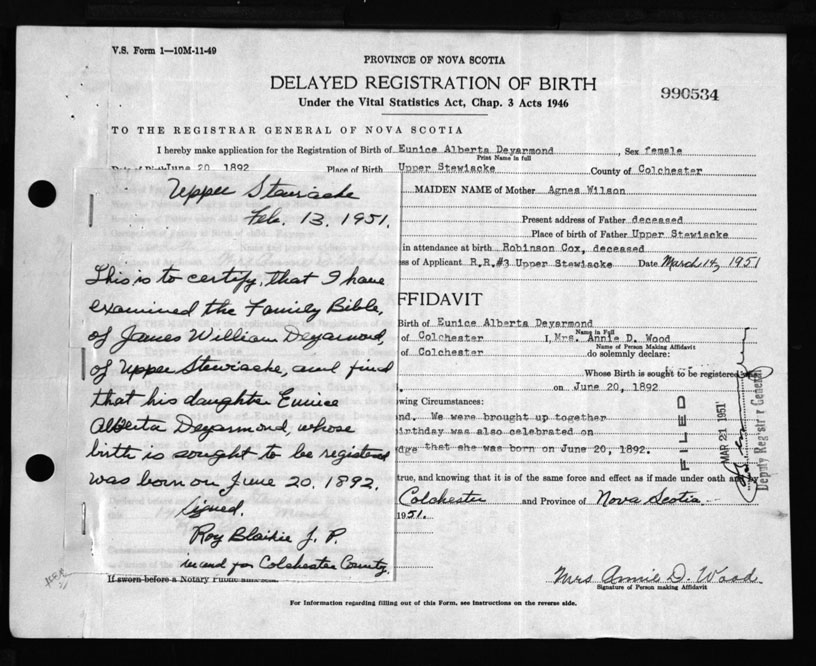 V.S. Form 1—10M-11-49
PROVINCE OF NOVA SCOTIA
DELAYED REGISTRATION OF BIRTH
990534
Under the Vital Statistics Act, Chap. 3 Acts 1946
TO THE REGISTRAR GENERAL OF NOVA SCOTIA
I hereby make application for the Registration of Birth of Eunice Alberta Deyarmond, Sex female
Print Name in full
June 20, 1892 Place of Birth Upper Stewiacke County of Colchester
MAIDEN NAME of Mother Agnes Wilson
Present address of Father deceased
Place of birth of Father Upper Stewiacke
in attendance at birth Robinson Cox, deceased
ss of Applicant R.R.#3 Upper Stewiacke Date March 14, 1951
Upper Stewiacke
Feb. 13. 1951.
This is to certify, that I have
examined the Family Bible,
of James William Deyarmond,
of Upper Stewiacke, and find
that his daughter Eunice
Alberta Deyarmond, whose
birth is sought to be registered
was born on June 20, 1892.
Signed,
Roy Blaikie J. P.
in and for Colchester County.
FFIDAVIT
Birth of Eunice Alberta Deyarmond
Name in Full
of Colchester I, Mrs. Annie D. Wood
Name of Person Making Affidavit
of Colchester do solemnly declare:
Whose Birth is sought to be registered
on June 20, 1892
wing Circumstances:
nd. We were brought up together
irthday was also celebrated on
dge that she was born on June 20, 1892.
true, and knowing that it is of the same force and effect as if made under oath and
Colchester and Province of Nova Scotia
1951.
FILED
MAR 21 1951
Deputy Registrar General
If sworn before a Notary Public
Mrs Annie D. Wood.
Signature of Person making Affidavit
For Information regarding filling out of this Form, see Instructions on the reverse side.